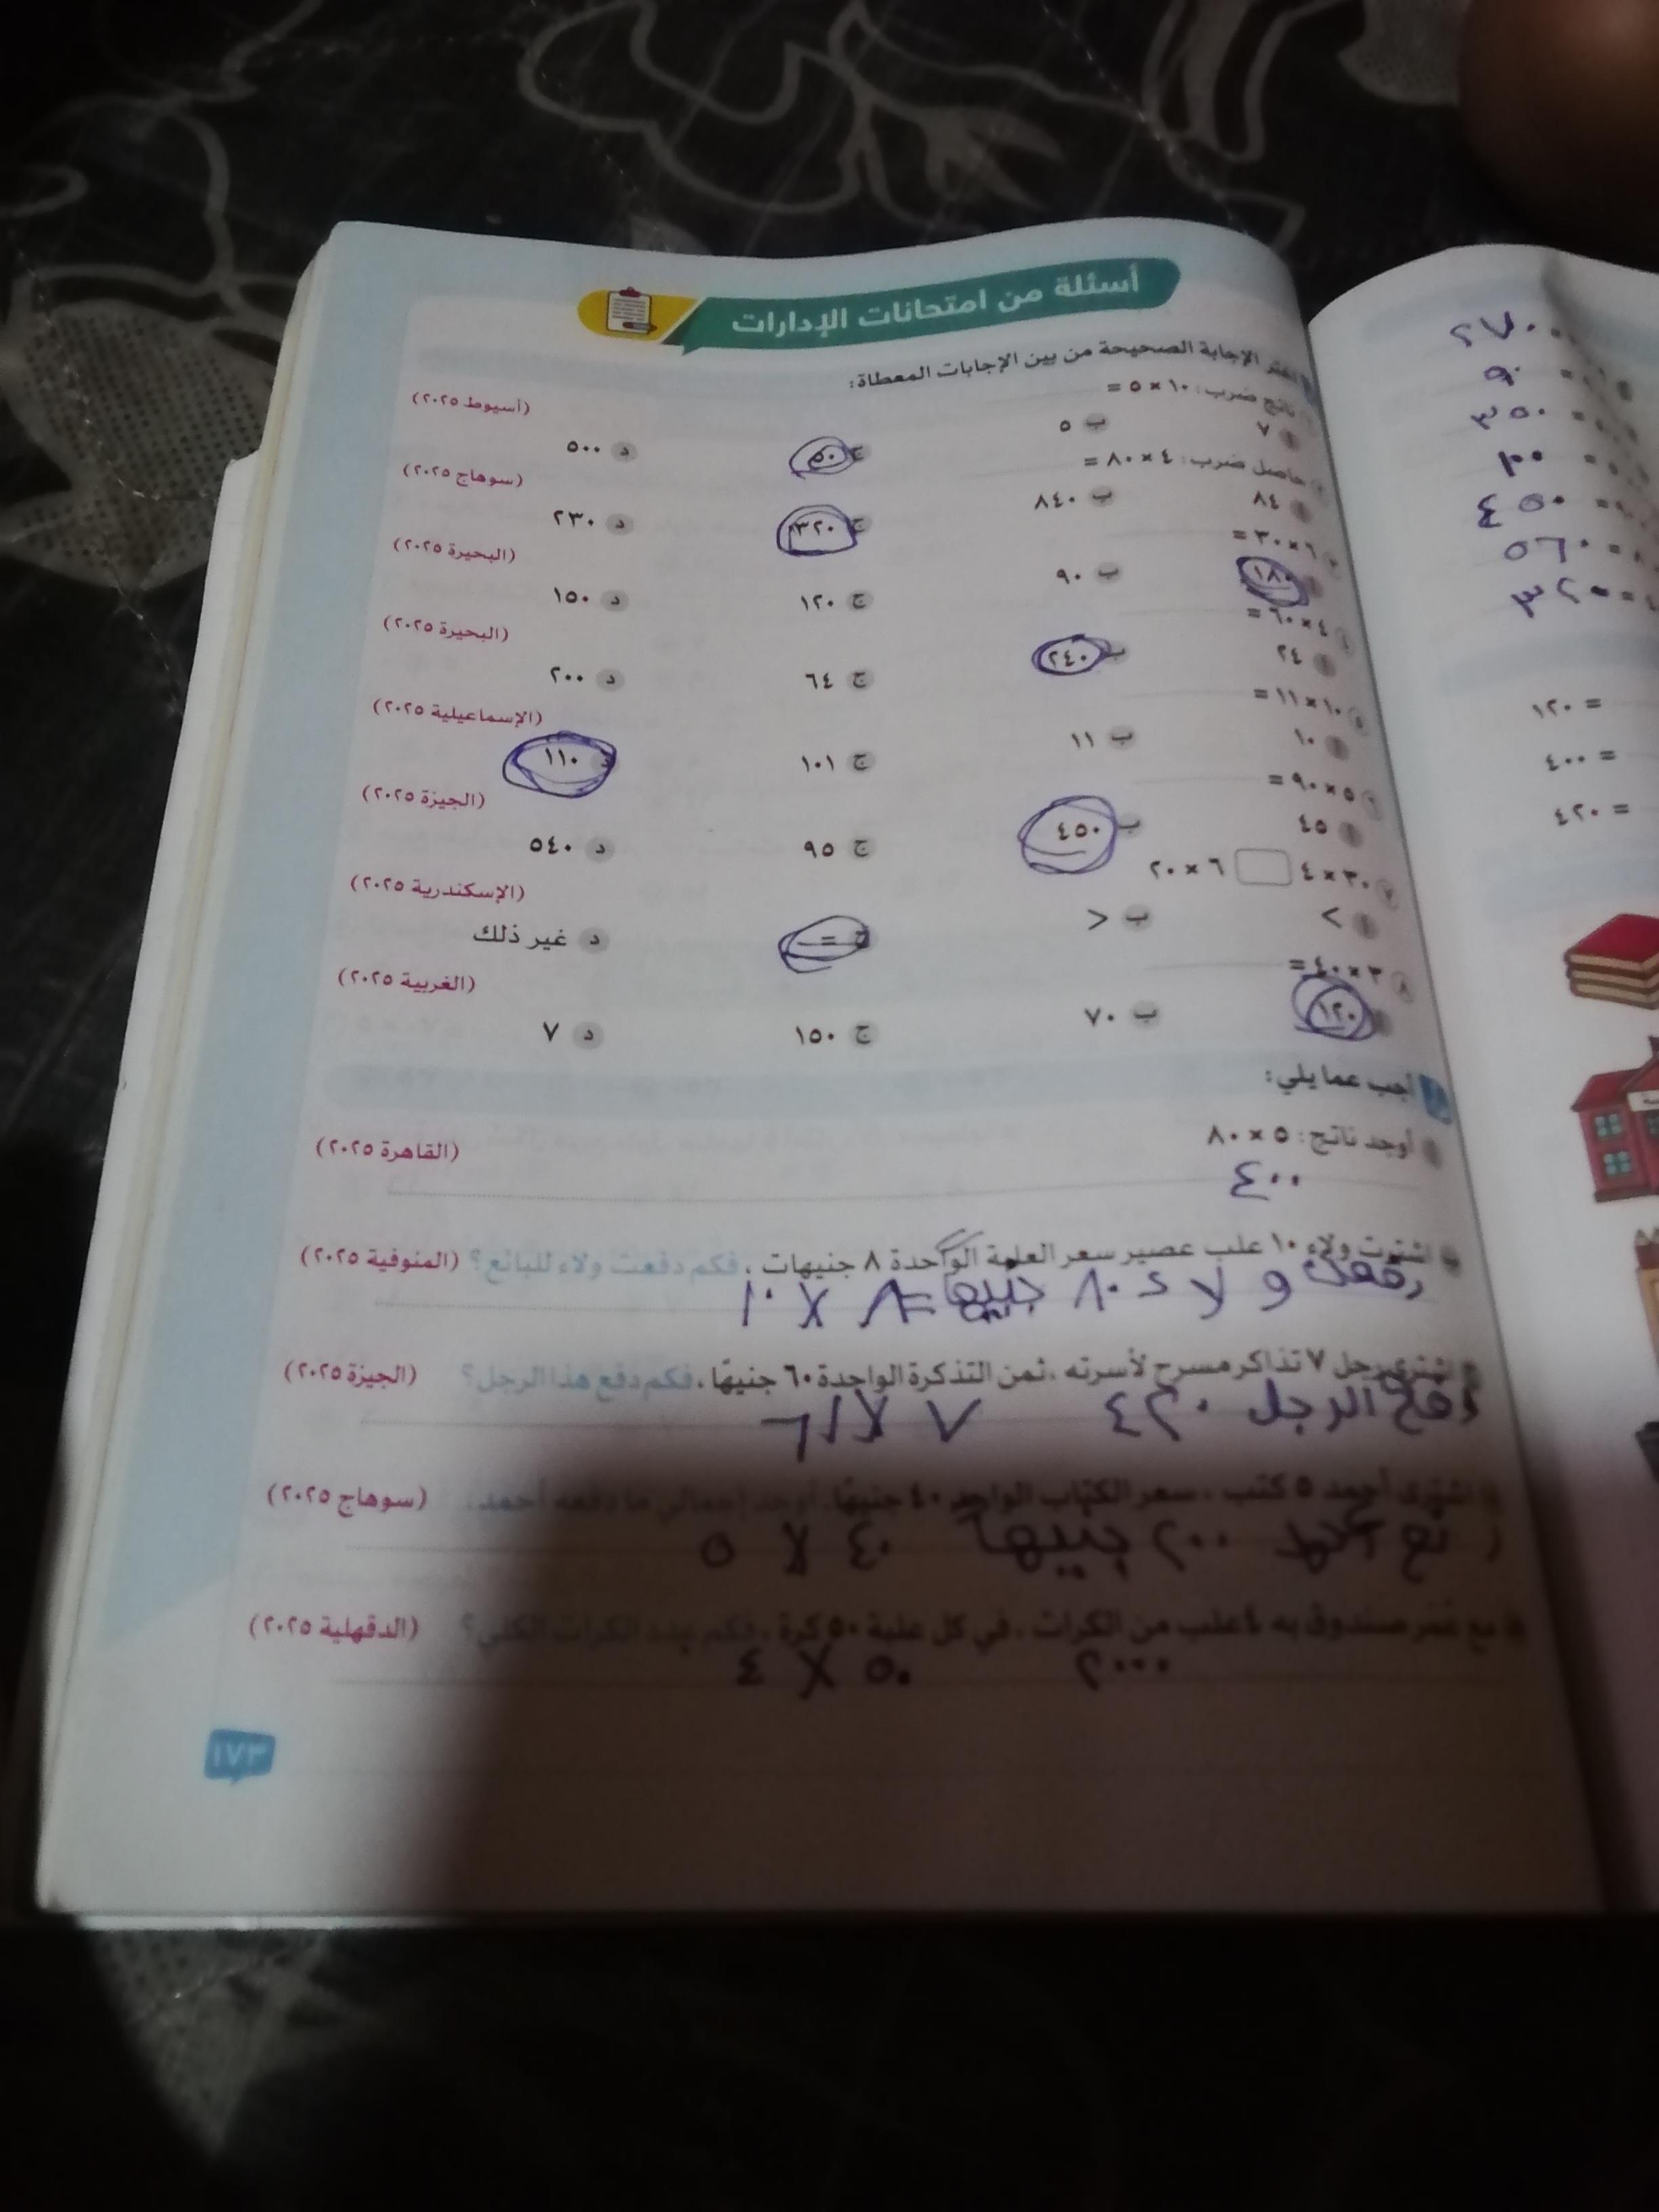 أسئلة من امتحانات الإدارات
اختر الإجابة الصحيحة من بين الإجابات المعطاة:
ناتج ضرب: ١٠ × ٥ = (أسيوط ٢٠٢٥)
أ ٧ ب ٥ ج ٥٠ د ٥٠٠
حاصل ضرب: ٤ × ٨٠ = (سوهاج ٢٠٢٥)
أ ٨٤ ب ٨٤٠ ج ٣٢٠ د ٢٣٠
٦ × ٣٠ = (البحيرة ٢٠٢٥)
١٨٠ ب ٩٠ ج ١٢٠ د ١٥٠
٤ ٤ × ٦٠ = (البحيرة ٢٠٢٥)
أ ٢٤ ب ٢٤٠ ج ٦٤ د ٢٠٠
٥ ١٠ × ١١ = (الإسماعيلية ٢٠٢٥)
أ ١٠ ب ١١ ج ١٠١ د ١١٠
٦ ٥ × ٩٠ = (الجيزة ٢٠٢٥)
أ ٤٥ ب ٤٥٠ ج ٩٥ د ٥٤٠
٧ ٣٠ × ٤ ٦ × ٢٠ (الإسكندرية ٢٠٢٥)
أ > ب < ج = د غير ذلك
٨ ٣ × ٤٠ = (الغربية ٢٠٢٥)
١٢٠ ب ٧٠ ج ١٥٠ د ٧
أجب عما يلي:
أوجد ناتج: ٥ × ٨٠ (القاهرة ٢٠٢٥)
٤٠٠
اشترت ولاء ١٠ علب عصير سعر العلبة الواحدة ٨ جنيهات ، فكم دفعت ولاء للبائع؟ (المنوفية ٢٠٢٥)
دفعت ولاء ٨٠ جنيها = ٨ × ١٠
اشترى رجل ٧ تذاكر مسرح لأسرته ، ثمن التذكرة الواحدة ٦٠ جنيهًا ، فكم دفع هذا الرجل؟ (الجيزة ٢٠٢٥)
دفع الرجل ٤٢٠ ٧ ×
اشترى أحمد ٥ كتب ، سعر الكتاب الواحد ٤٠ جنيهًا، أوجد إجمالي ما دفعه أحمد. (سوهاج ٢٠٢٥)
احمد ٢٠٠ جنيها ٤٠ × ٥
مع عمر صندوق به ٤ علب من الكرات ، في كل علبة ٥٠ كرة ، فكم عدد الكرات الكلي؟ (الدقهلية ٢٠٢٥)
٢٠٠٠ ٥٠ × ٤
١٧٣
٢٧٠
٩٠
٣٥٠
٤٥٠
٥٦٠
٣٢٠
= ١٢٠
= ٤٠٠
= ٤٢٠